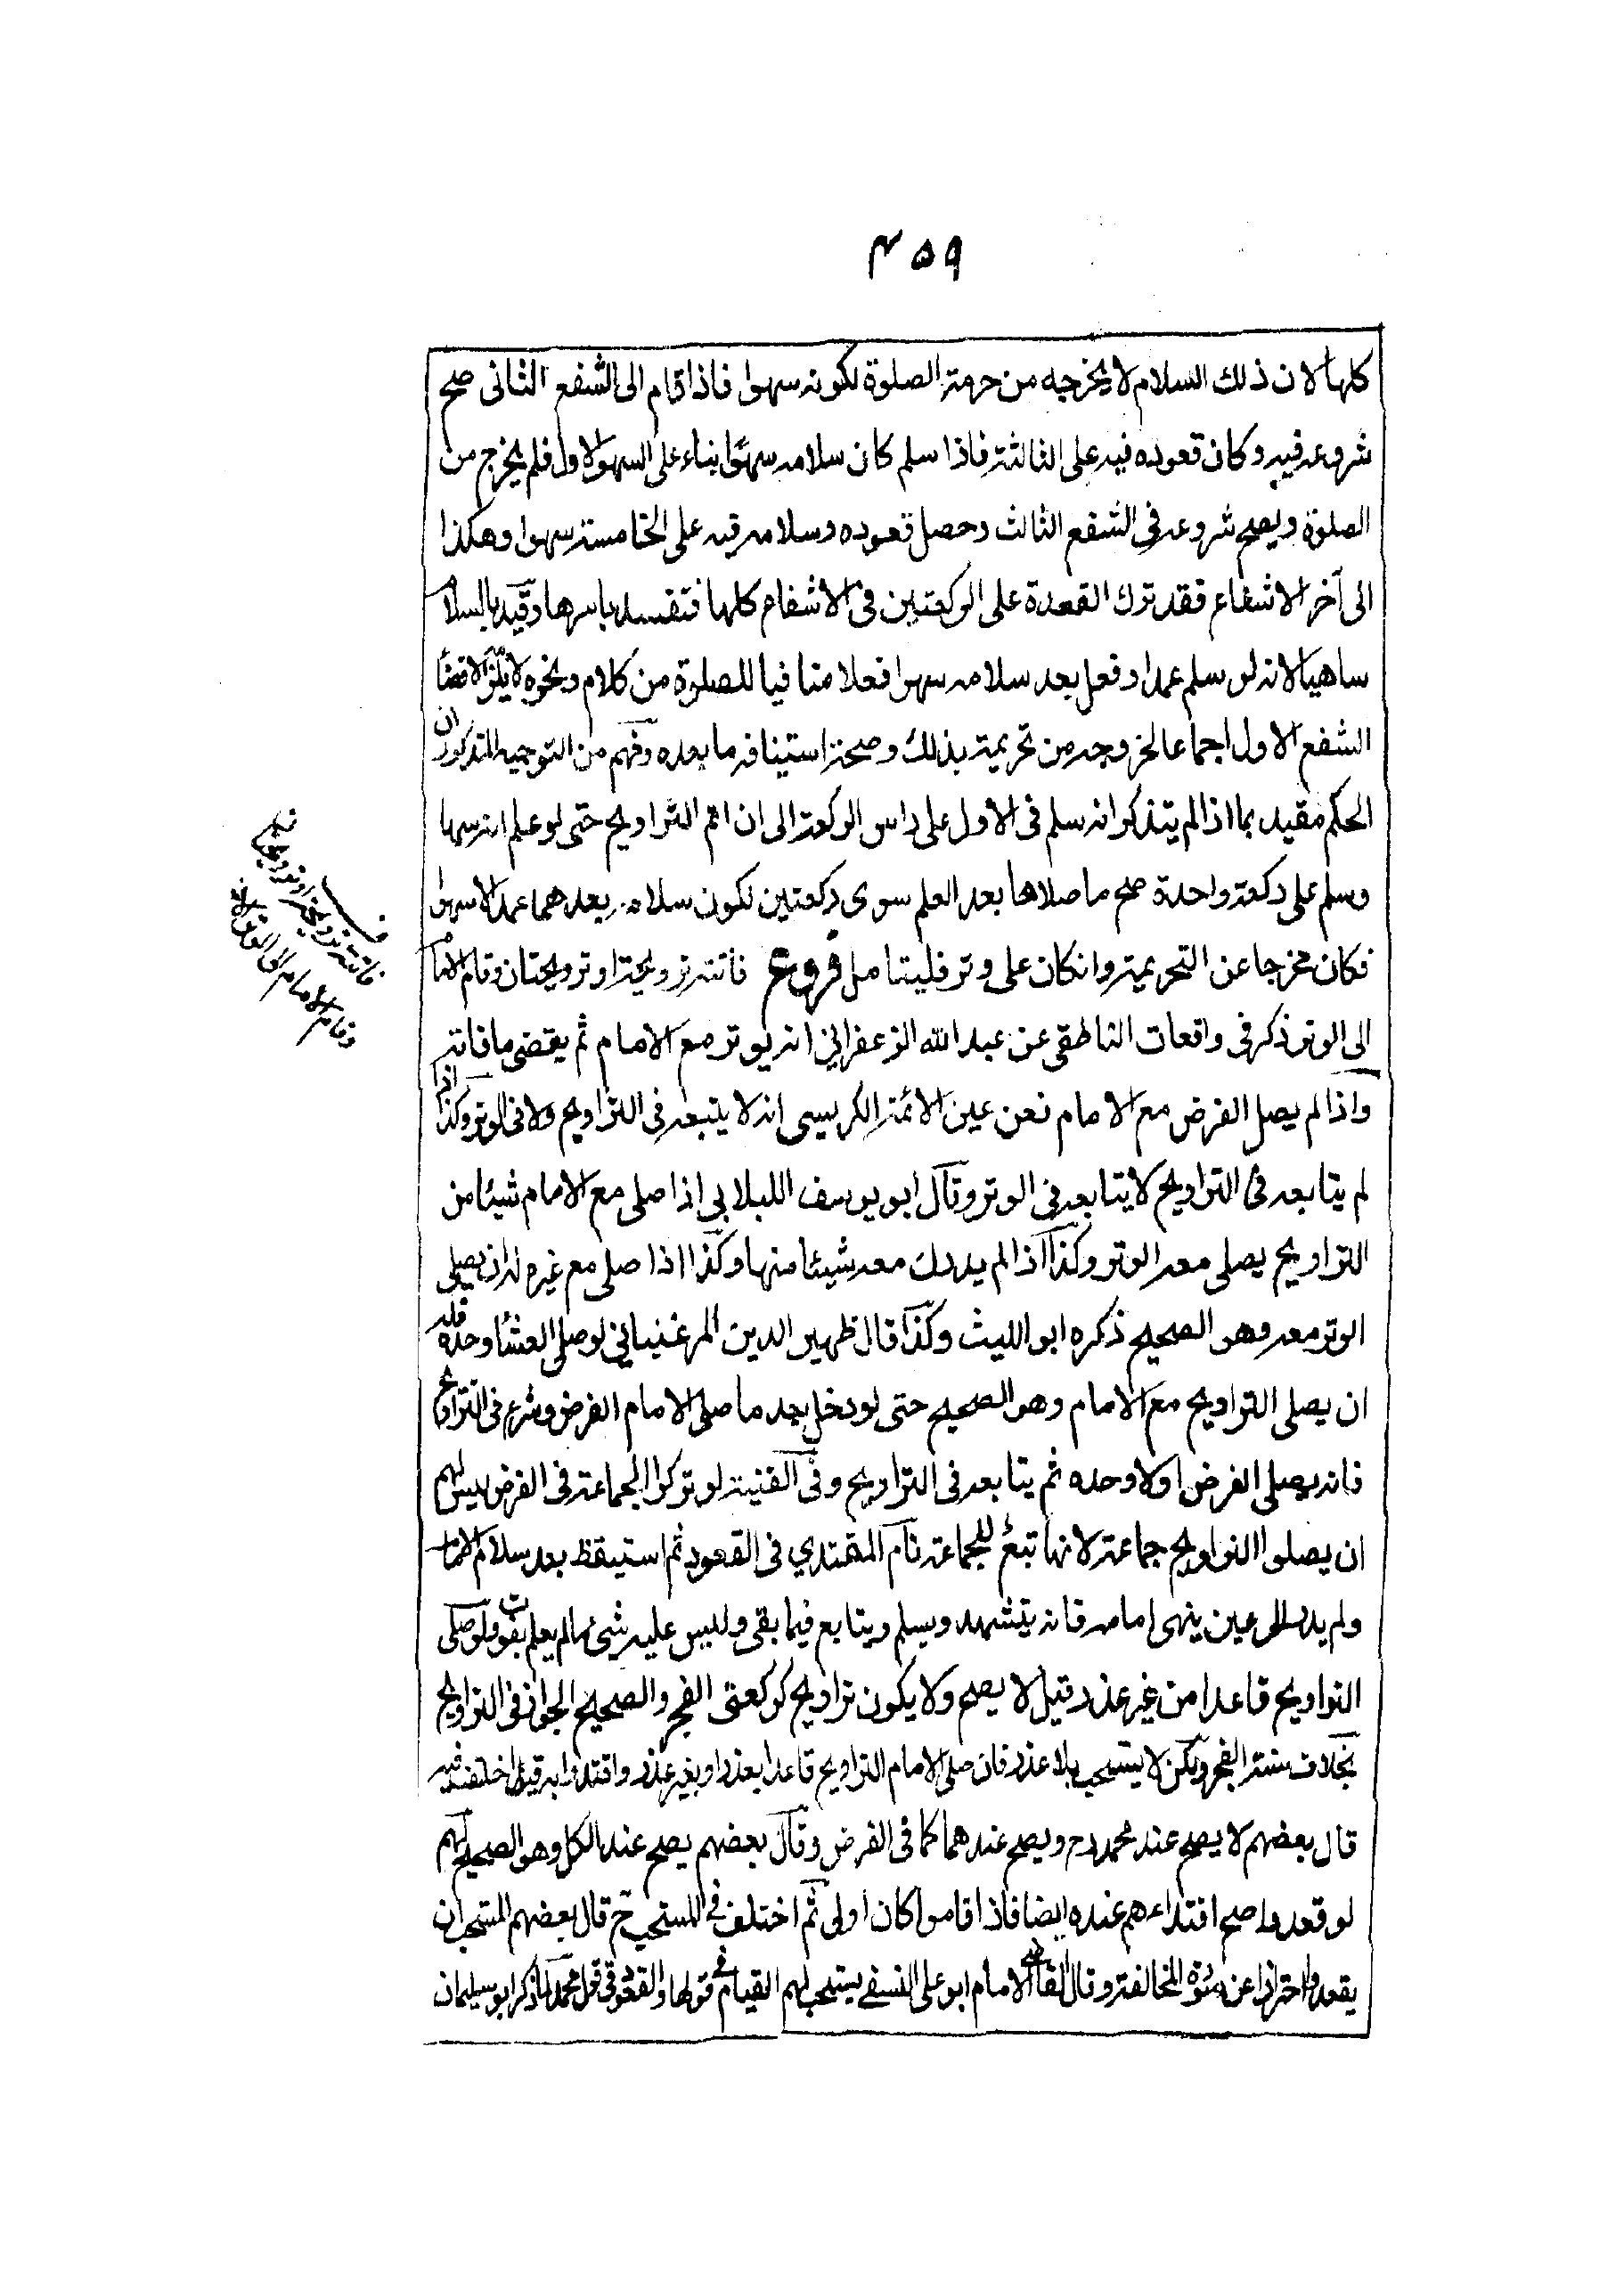 ۴۵۹
كلها لان ذلك السلام لا يخرجه من حرمة الصلوة لكونه سهوا فاذا قام الى الشفع الثانى صح
شروعه فيه وكان قعوده فيه على الثالثة فاذا سلم كان سلامه سهوا بناء على السهو الاول فلم يخرج من
الصلوة ويصح شروعه فى الشفع الثالث وحصل قعوده وسلامه فيه على الخامسة سهوا وهكذا
الى آخر الاشفاع فقد ترك القعدة على الركعتين فى الاشفاع كلها فتفسد باسرها وقيد بالسلام
ساهيا لانه لو سلم عمدا او فعل بعد سلامه سهوا فعلا منافيا للصلوة من كلام ونحوه لا يلزم الا قضاء
الشفع الاول اجماعا لخروجه من تحريمته بذلك وصحة استينافه ما بعده وفهم من التوجيه المذكور ان
الحكم مقيد بما اذا لم يتذكر انه سلم فى الاول على راس الركعة الى ان اتم التراويح حتى لو علم انه سها
وسلم على ركعة واحدة صح ما صلاها بعد العلم سوى ركعتين لكون سلامه بعدهما عمدا لا سهوا
فكان مخرجا عن التحريمة وانكان على وتر فليتامل فروع فاتته ترويحة او ترويحتان وقام الامام
الى الوتر ذكر فى واقعات الناطقى عن عبد الله الزعفرانى انه يوتر مع الامام ثم يقضى ما فاته
واذا لم يصل الفرض مع الامام فعن عين الائمة الكربيسى انه لا يتبعه فى التراويح ولا فى الوتر وكذا اذا
لم يتابعه فى التراويح لا يتابعه فى الوتر وقال ابو يوسف اللبلابى اذا صلى مع الامام شيئا من
التراويح يصلى معه الوتر وكذا اذا لم يدرك معه شيئا منها وكذا اذا صلى مع غيره له ان يصلى
الوتر معه وهو الصحيح ذكره ابو الليث وكذا قال ظهير الدين المرغينانى لو صلى العشاء وحده فله
ان يصلى التراويح مع الامام وهو الصحيح حتى لو دخل بعد ما صلى الامام الفرض وشرع فى التراويح
فانه يصلى الفرض اولا وحده ثم يتابعه فى التراويح وفى القنية لو تركوا الجماعة فى الفرض ليس لهم
ان يصلوا التراويح جماعة لانها تبع للجماعة نام المقتدي فى القعود ثم استيقظ بعد سلام الامام
ولم يدر الى عين ينهى امامه فانه يتشهد ويسلم ويتابع فيما بقى وليس عليه شئ مالم يعلم بفوت ولو صلى
التراويح قاعدا من غير عذر قيل لا يصح ولا يكون تراويح كركعتى الفجر والصحيح الجواز فى التراويح
بخلاف سنة الفجر ولكن لا يستحب بلا عذر فان صلى الامام التراويح قاعدا بعذر او بغير عذر واقتدوا به قيل اختلف فيه
قال بعضهم لا يصح عند محمد رح ويصح عندهما كما فى الفرض وقال بعضهم يصح عند الكل وهو الصحيح لهم
لو قعدوا صح اقتداءهم عنده ايضا فاذا قاموا كان اولى ثم اختلف فى المستحب ح قال بعضهم المستحب ان
يقعدوا احترازا عن صورة المخالفة وقال القاضى الامام ابو على النسفى يستحب لهم القيام فى قولهما والقعود فى قول محمد لما ذكر ابو سليمان
فاتته ترويحة او ترويحتان
وقام الامام الى الوتر